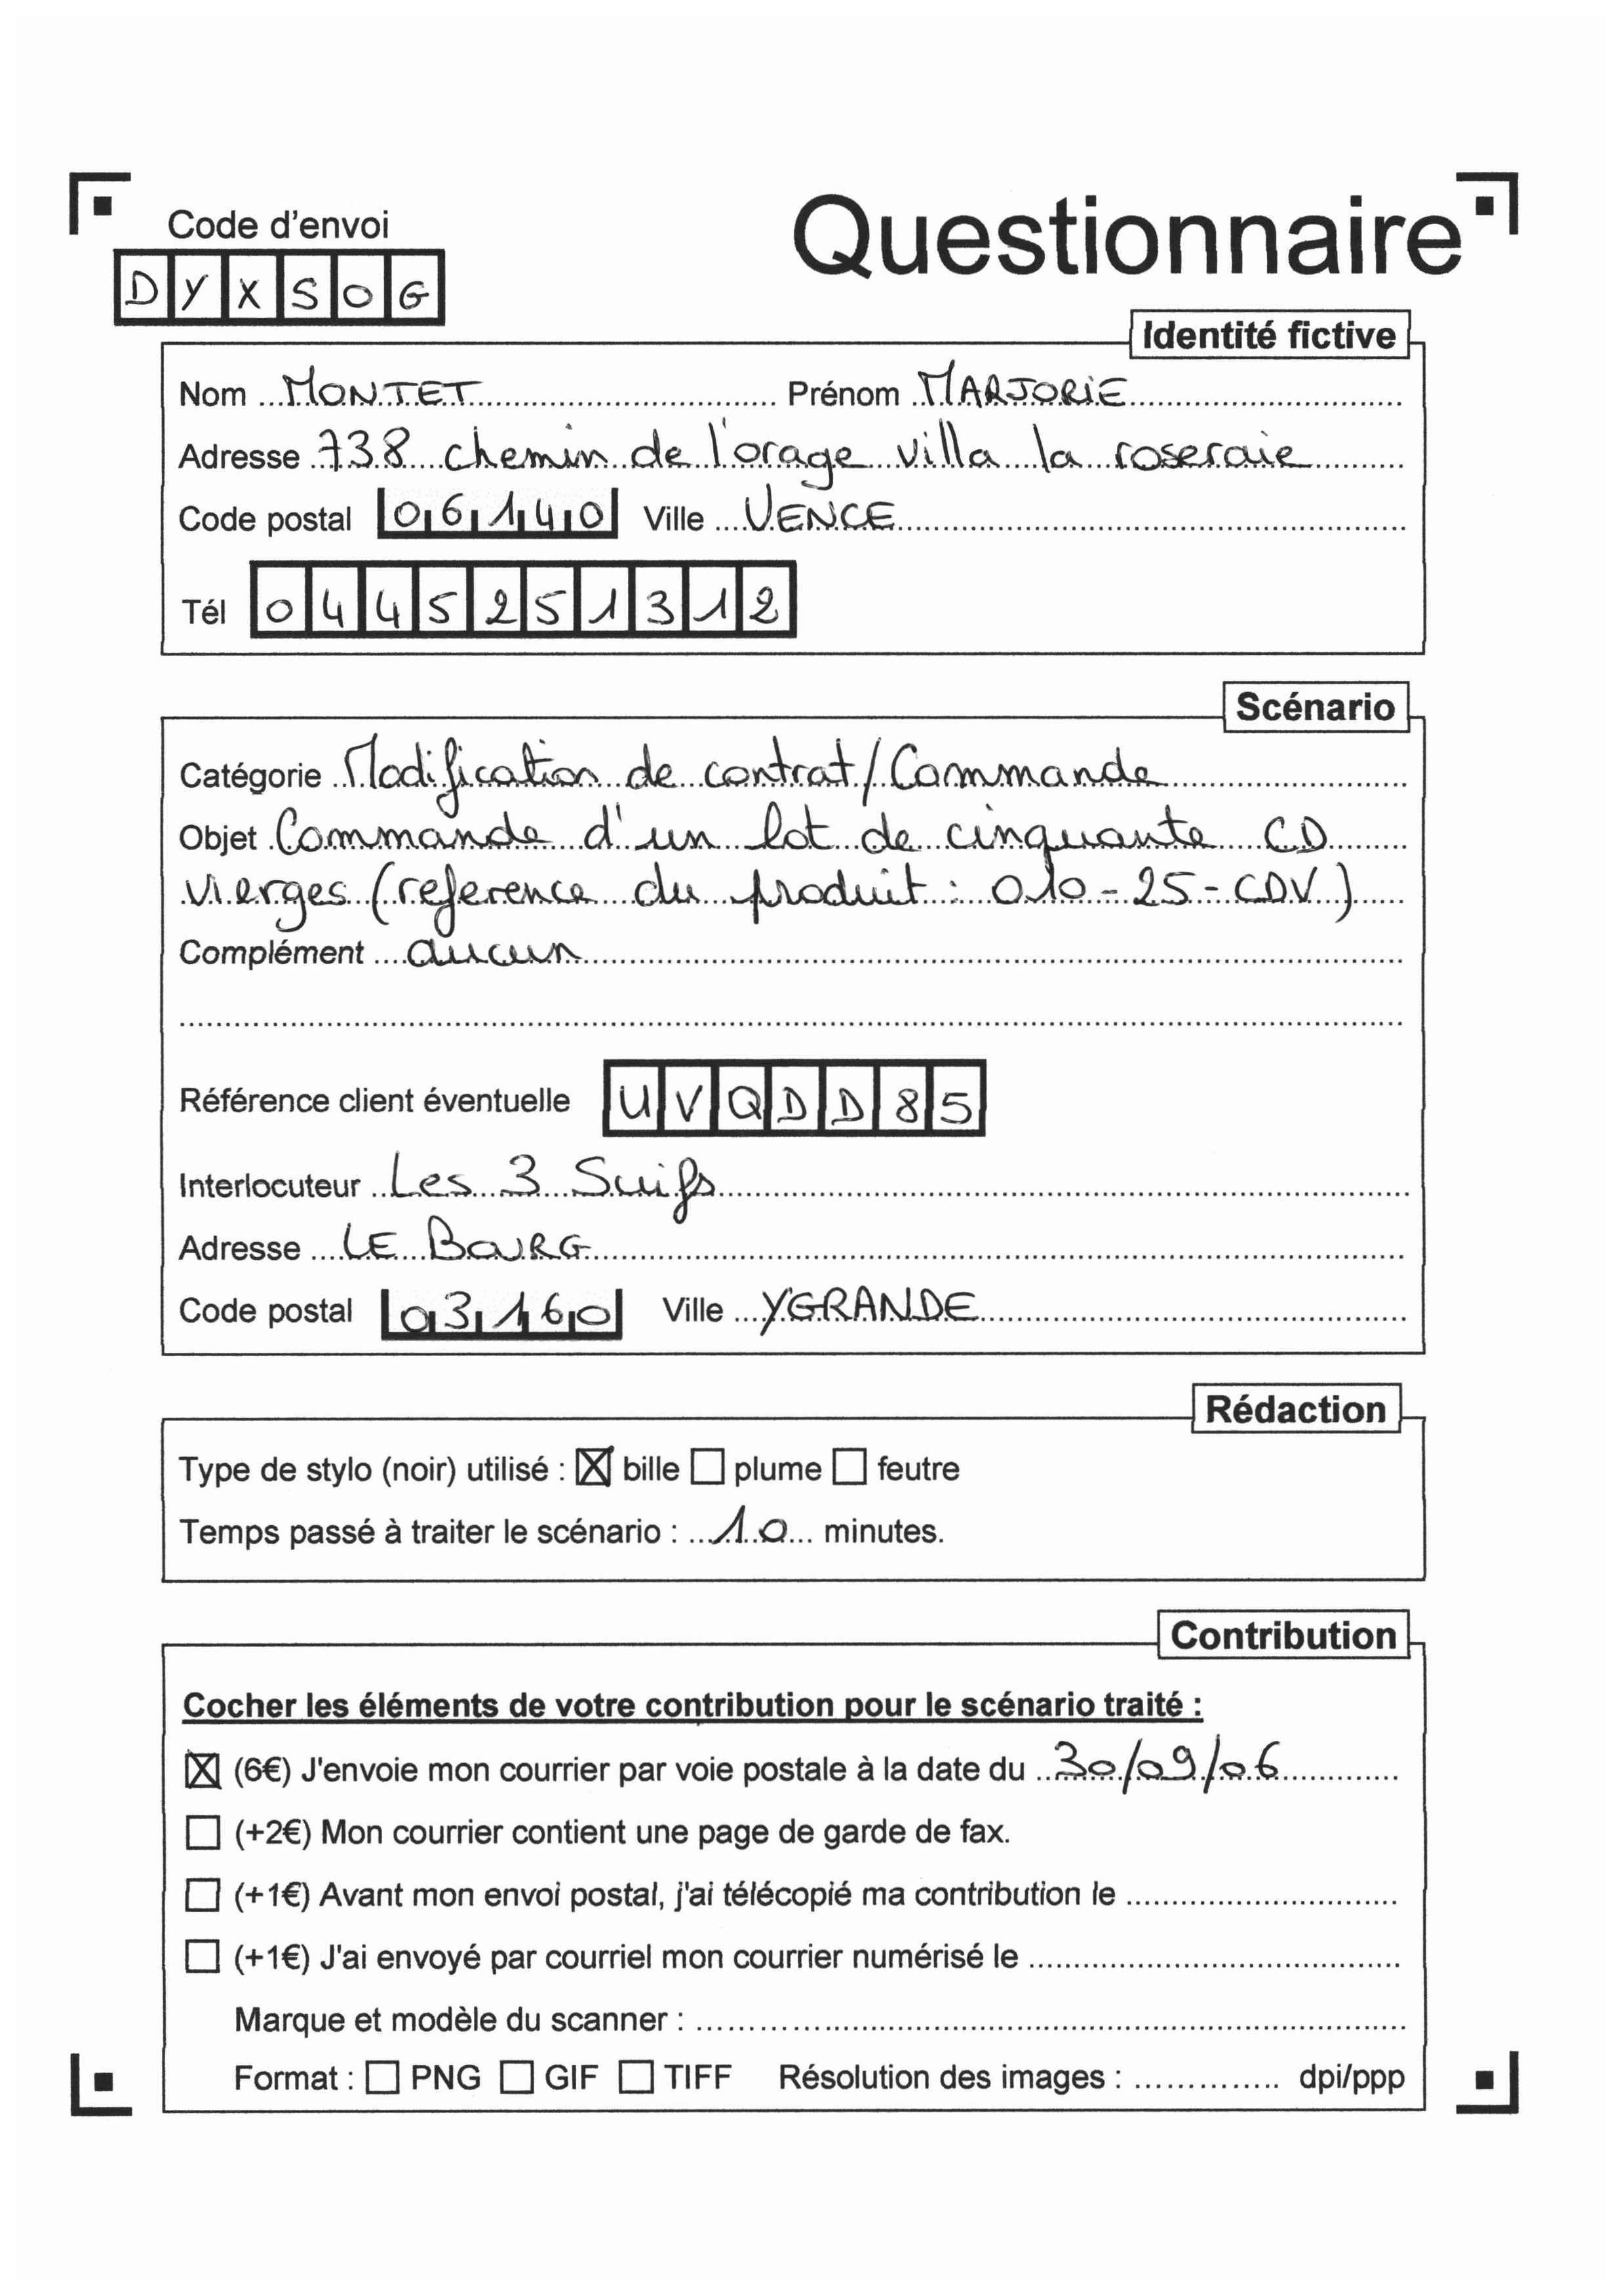 Code d'envoi
Questionnaire
DYXSOG
Identité fictive
Nom MONTET Prénom MARJORIE
Adresse 738 chemin de l'orage villa la roseraie
Code postal 06140 Ville VENCE
Tél 0445251312
Scénario
Catégorie Modification de contrat/Commande
Objet Commande d'un lot de cinquante CD
vierges (reference du produit : 010-25-CDV)
Complément aucun
Référence client éventuelle UVQDD85
Interlocuteur Les 3 Suifs
Adresse LE BOURG
Code postal 03160 Ville YGRANDE
Rédaction
Type de stylo (noir) utilisé : ☒ bille ☐ plume ☐ feutre
Temps passé à traiter le scénario : 10 minutes.
Contribution
Cocher les éléments de votre contribution pour le scénario traité :
☒ (6€) J'envoie mon courrier par voie postale à la date du 30/09/06
☐ (+2€) Mon courrier contient une page de garde de fax.
☐ (+1€) Avant mon envoi postal, j'ai télécopié ma contribution le
☐ (+1€) J'ai envoyé par courriel mon courrier numérisé le
Marque et modèle du scanner :
Format : ☐ PNG ☐ GIF ☐ TIFF Résolution des images : dpi/ppp